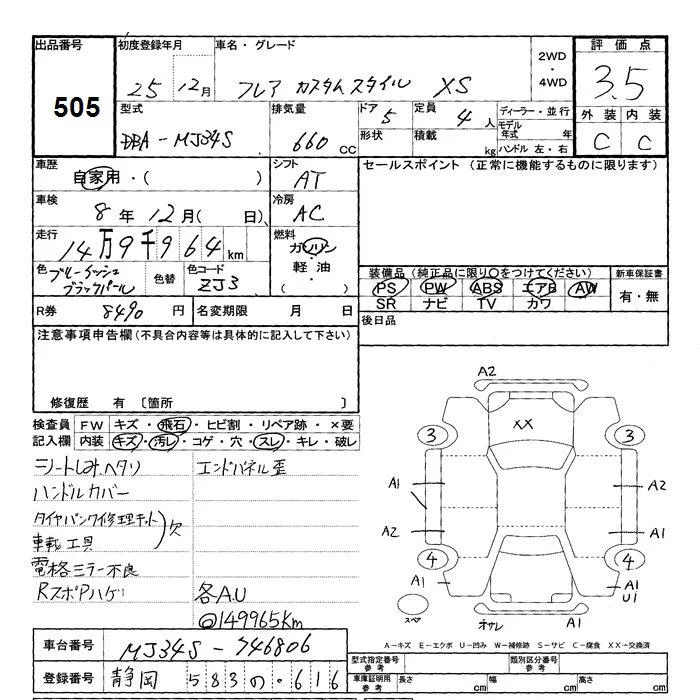 出品番号 初度登録年月 車名・グレード 2WD・4WD 評価点
505 25 12月 フレア カスタムスタイル XS 3.5
型式 排気量 ドア 5 定員 4人 ディーラー・並行 外装 内装
DBA-MJ34S 660 CC 形状 積載 kg モデル年式 年 C C
ハンドル 左・右
車歴 自家用・( ) シフト AT セールスポイント (正常に機能するものに限ります)
車検 8年 12月( 日) 冷房 AC
走行 14万9千964km 燃料 ガソリン・軽油・( )
色 ブルーイッシュブラックパール 色替 色コード ZJ3 装備品(純正品に限り○をつけてください) 新車保証書
PS PW ABS エアB AW 有・無
SR ナビ TV カワ
R券 8490円 名変期限 月 日 後日品
注意事項申告欄(不具合内容等は具体的に記入して下さい)
修復歴 有 〔箇所 〕
検査員 FW キズ・飛石・ヒビ割・リペア跡・×要
記入欄 内装 キズ・汚レ・コゲ・穴・スレ・キレ・破レ
シートしみ、ヘタリ エンドパネル歪
ハンドルカバー
タイヤパンク修理キット
車載工具 欠
電格ミラー不良
RスポPハゲ 各A.U
@149965Km
A2
XX
3 3
A1 A2
A2 A1
4 4
A1 A1
U1
スペア オサレ A1
A-キズ E-エクボ U-凹み W-補修跡 S-サビ C-腐食 XX-交換済
車台番号 MJ34S-746806 型式指定番号 参考 類別区分番号 参考
登録番号 静岡 583の・616 車庫証明用 参考 長さ cm 幅 cm 高さ cm